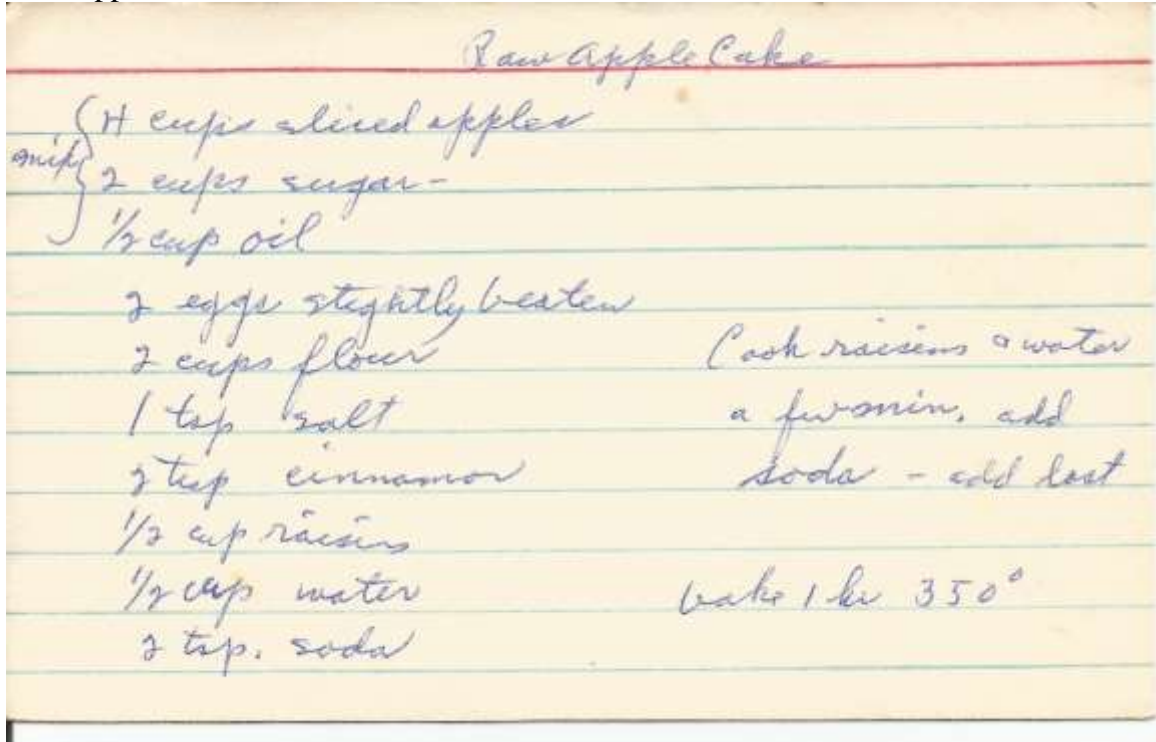 Raw Apple Cake
mix
4 cups sliced apples
2 cups sugar-
1/2 cup oil
2 eggs slightly beaten
2 cups flour
1 tsp salt
2 tsp cinnamon
1/2 cup raisins
1/2 cup water
2 tsp. soda
Cook raisins & water
a few min. add
soda - add last
bake 1 hr 350°